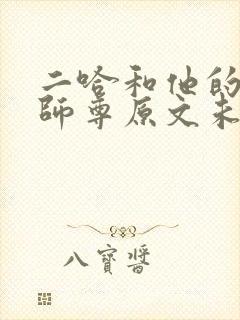 二哈和他的
師尊原文未
八寶醬